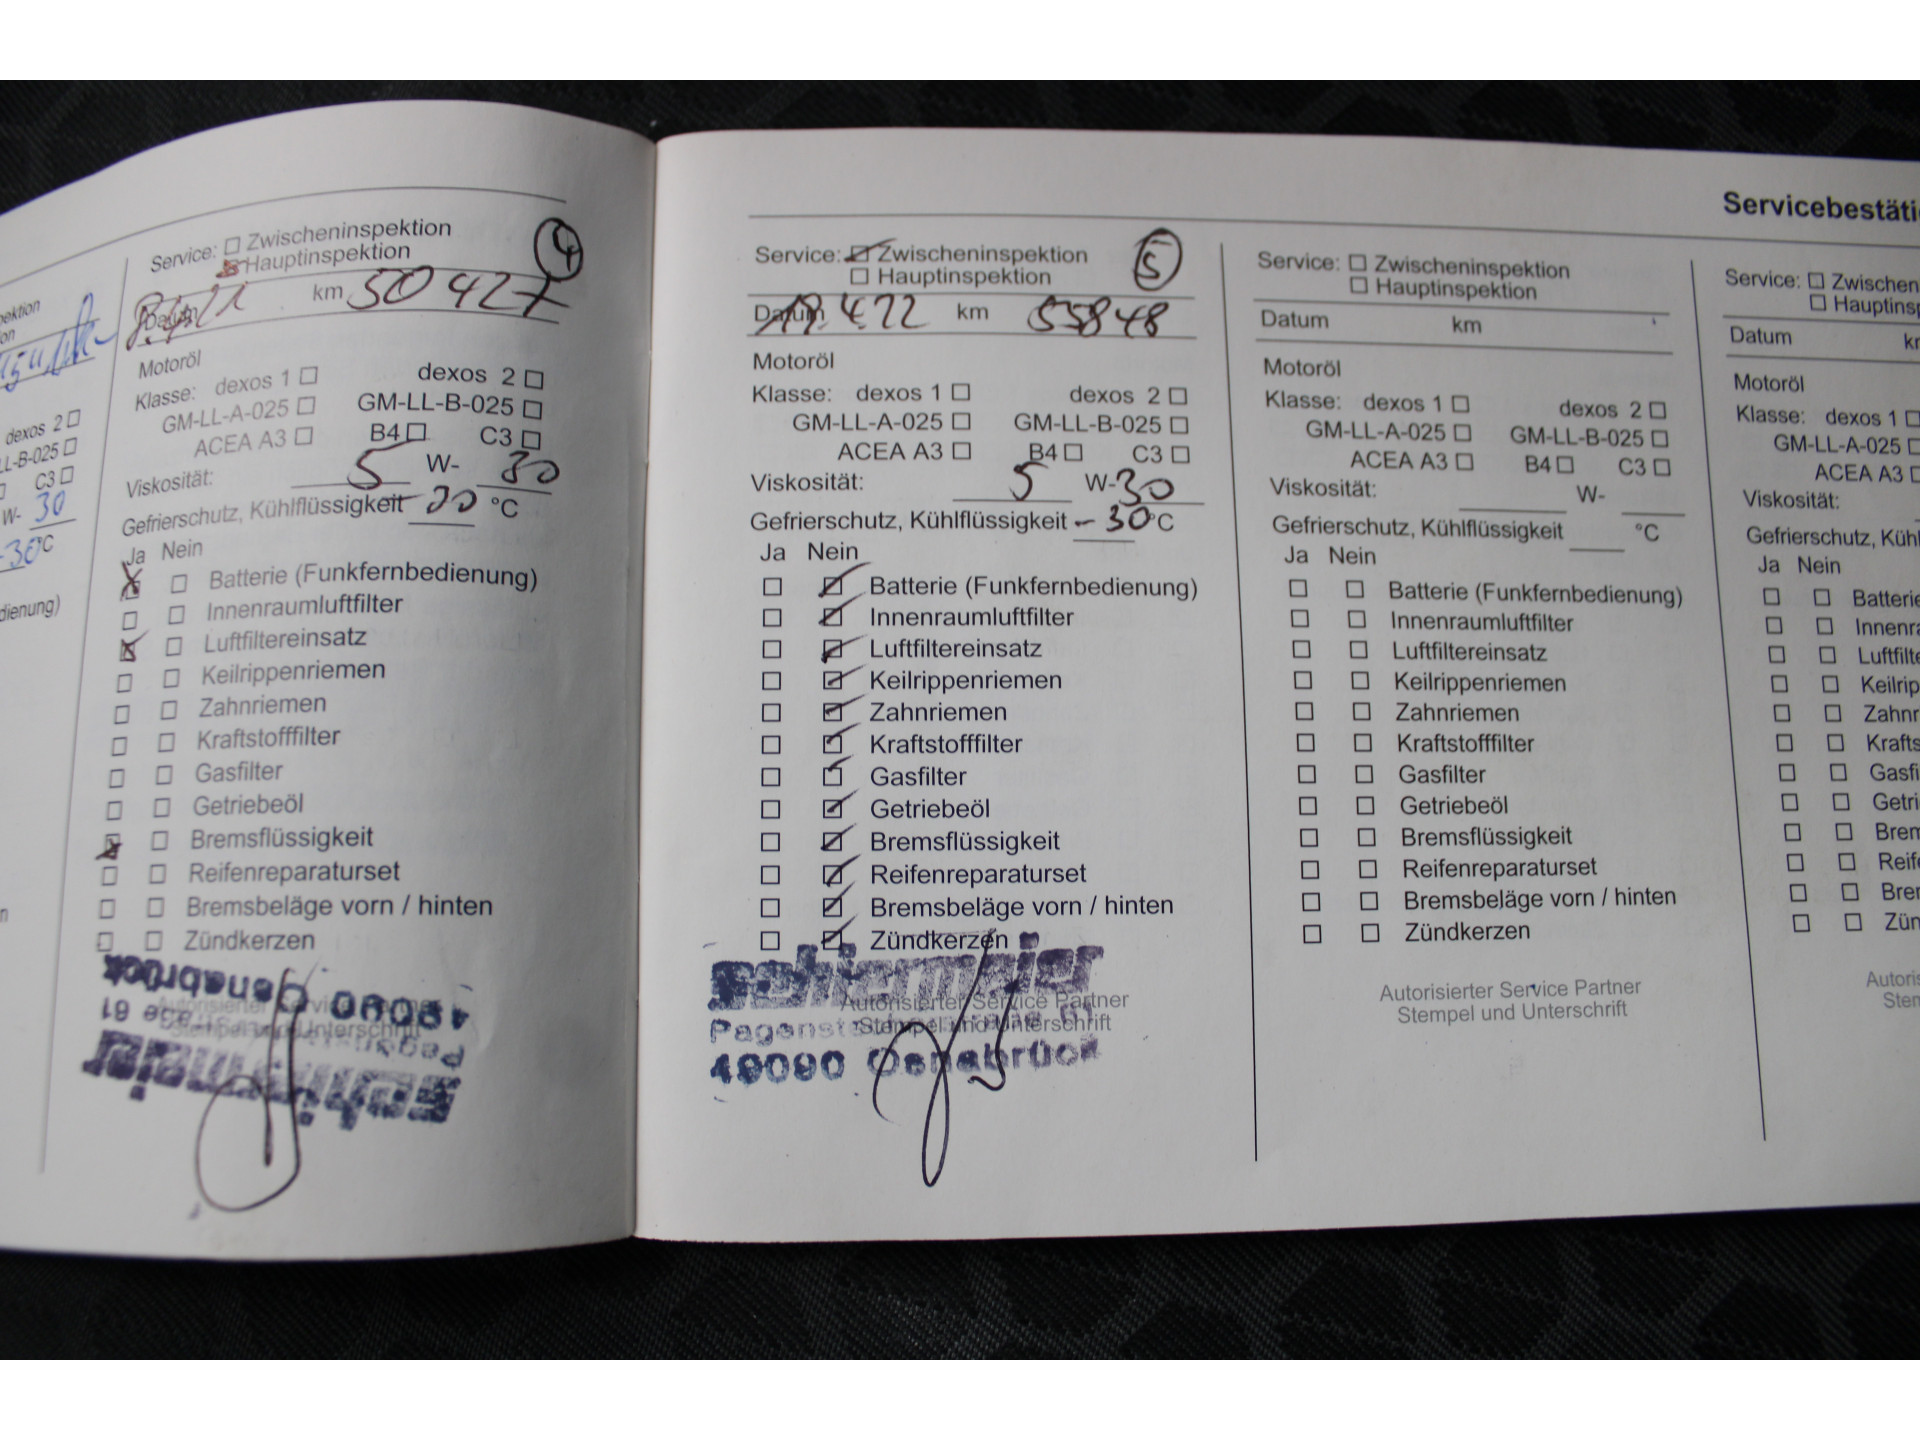 Servicebestäti
pektion
on
dexos 2 ☐
LL-B-025 ☐
C3 ☐
W- 30
-30°C
dienung)
Service: ☐ Zwischeninspektion
☒ Hauptinspektion
4
Datum
km 50 427
Motoröl
Klasse: dexos 1 ☐ dexos 2 ☐
GM-LL-A-025 ☐ GM-LL-B-025 ☐
ACEA A3 ☐ B4 ☐ C3 ☐
Viskosität: 5 W- 30
Gefrierschutz, Kühlflüssigkeit °C
Ja Nein
☒ ☐ Batterie (Funkfernbedienung)
☐ ☐ Innenraumluftfilter
☒ ☐ Luftfiltereinsatz
☐ ☐ Keilrippenriemen
☐ ☐ Zahnriemen
☐ ☐ Kraftstofffilter
☐ ☐ Gasfilter
☐ ☐ Getriebeöl
☒ ☐ Bremsflüssigkeit
☐ ☐ Reifenreparaturset
☐ ☐ Bremsbeläge vorn / hinten
☐ ☐ Zündkerzen
Autorisierter Service Partner
Stempel und Unterschrift
schiermeier
Pagenstecherstraße 61
49090 Osnabrück
Service: ☒ Zwischeninspektion
☐ Hauptinspektion
5
Datum 19.4.22 km 55848
Motoröl
Klasse: dexos 1 ☐ dexos 2 ☐
GM-LL-A-025 ☐ GM-LL-B-025 ☐
ACEA A3 ☐ B4 ☐ C3 ☐
Viskosität: 5 W-30
Gefrierschutz, Kühlflüssigkeit -30°C
Ja Nein
☐ ☒ Batterie (Funkfernbedienung)
☐ ☒ Innenraumluftfilter
☐ ☒ Luftfiltereinsatz
☐ ☒ Keilrippenriemen
☐ ☒ Zahnriemen
☐ ☒ Kraftstofffilter
☐ ☒ Gasfilter
☐ ☒ Getriebeöl
☐ ☒ Bremsflüssigkeit
☐ ☒ Reifenreparaturset
☐ ☒ Bremsbeläge vorn / hinten
☐ ☒ Zündkerzen
schiermeier
Autorisierter Service Partner
Pagenstecherstraße 61
Stempel und Unterschrift
49090 Osnabrück
Service: ☐ Zwischeninspektion
☐ Hauptinspektion
Datum km
Motoröl
Klasse: dexos 1 ☐ dexos 2 ☐
GM-LL-A-025 ☐ GM-LL-B-025 ☐
ACEA A3 ☐ B4 ☐ C3 ☐
Viskosität: W-
Gefrierschutz, Kühlflüssigkeit °C
Ja Nein
☐ ☐ Batterie (Funkfernbedienung)
☐ ☐ Innenraumluftfilter
☐ ☐ Luftfiltereinsatz
☐ ☐ Keilrippenriemen
☐ ☐ Zahnriemen
☐ ☐ Kraftstofffilter
☐ ☐ Gasfilter
☐ ☐ Getriebeöl
☐ ☐ Bremsflüssigkeit
☐ ☐ Reifenreparaturset
☐ ☐ Bremsbeläge vorn / hinten
☐ ☐ Zündkerzen
Autorisierter Service Partner
Stempel und Unterschrift
Service: ☐ Zwischenins
☐ Hauptinsp
Datum k
Motoröl
Klasse: dexos 1 ☐
GM-LL-A-025 ☐
ACEA A3 ☐
Viskosität:
Gefrierschutz, Kühl
Ja Nein
☐ ☐ Batterie
☐ ☐ Innenra
☐ ☐ Luftfilte
☐ ☐ Keilrip
☐ ☐ Zahnr
☐ ☐ Krafts
☐ ☐ Gasfi
☐ ☐ Getri
☐ ☐ Brem
☐ ☐ Reife
☐ ☐ Bre
☐ ☐ Zün
Autoris
Stem